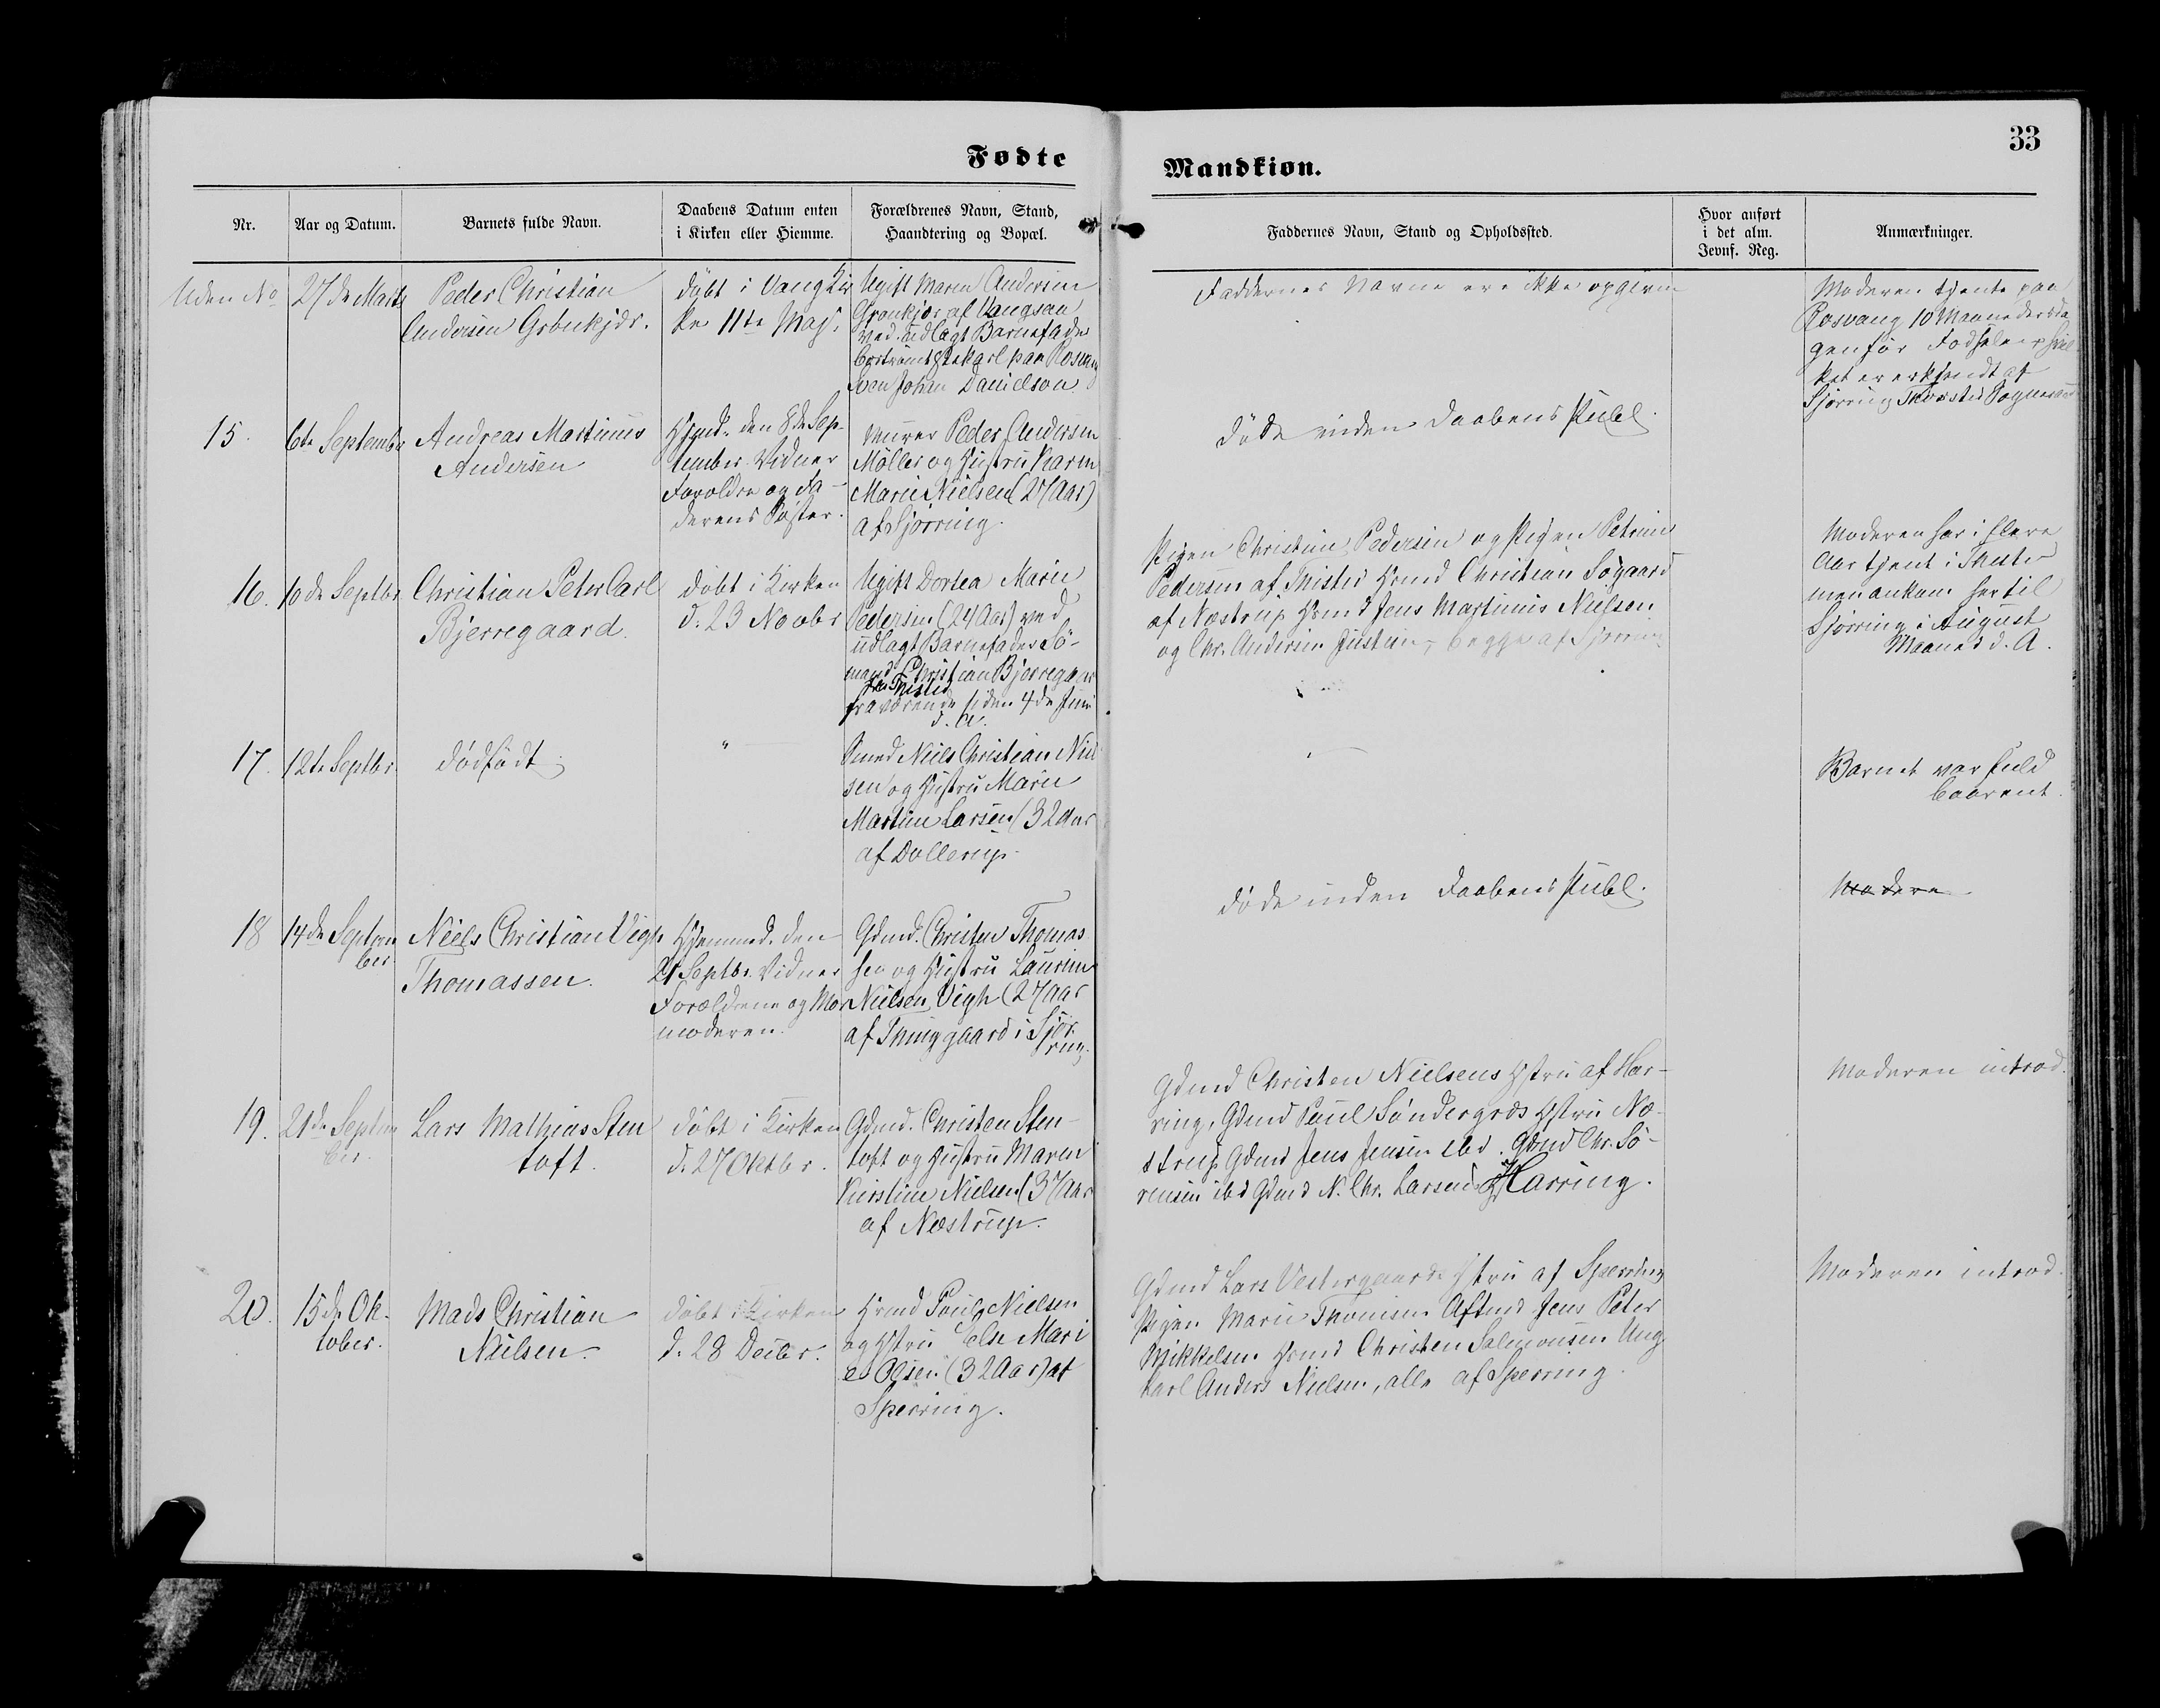 33
Fødte
Mandkiøn.
Nr.
Aar og Datum.
Barnets fulde Navn.
Daabens Datum enten
i Kirken eller Hiemme.
Forældrenes Navn, Stand,
Haandtering og Bopæl.
Faddernes Navn, Stand og Opholdssted.
Hvor anført
i det alm.
Jevnf. Reg.
Anmærkninger.
Uden No
27de Marts
Peder Christian
Andersen
døbt i Vang Kir
ke 11te Maj.
Ugift Maren Andersen
Grønkjær af Vangsaa
ved udlagt Barnefader
paa Rosvang
Sven Johan Danielson
Faddernes Navne ere ikke opgivne
Moderen tjente paa
Rosvang 10 Maanedersda
gen før Fødselen, hvil
ket er erkjendt af
Sjørring Thorsted Sogneraad
15.
6te September
Andreas Martinus
Andersen
Hjmd. den 8de Sep-
tember. Vidner
Forældre og Fa-
derens Søster.
Murer Peder Andersen
Møller og Hustru Karen
Marie Nielsen (27 Aar)
af Sjørring.
døde inden Daabens Publ.
16.
10de Septbr
Christian Peter Carl
Bjerregaard.
døbt i Kirken
d. 23 Novbr
Ugift Dortea Marie
Pedersen (24 Aar) ved
udlagt Barnefader Sø-
mand Christian Bjerregaar
fra Thisted
fraværende siden 4de Juni
d. A.
Pigen Christine Pedersen og Pigen Petrine
Pedersen af Thisted Hsmd Christian Søgaard
af Næstrup Hsmd Jens Martinus Nielsen
og Chr. Andersen Justsen, begge af Sjørring
Moderen har i flere
Aar tjent i Thisted
men ankom hertil
Sjørring i August
Maaned d. A.
17.
12te Septbr.
dødfødt
"
Smed Niels Christian Niel
sen og Hustru Marie
Martine Larsen (32 Aar
af Dollerup.
Barnet var fuld
baarent.
18
14de Septem
ber
Niels Christian Vigh
Thomassen.
Hjemmed. den
21 Septbr. Vidner
Forældrene og Mor
moderen.
Gdmd. Christen Thomas
sen og Hustru Laurine
Nielsen Vigh (27 Aar
af Thinggaard i Sjør
ring.
døde inden Daabens Publ.
Modere
19.
21de Septem
ber.
Lars Mathias Sten
toft.
døbt i Kirken
d. 27 Oktbr.
Gdmd. Christen Sten-
toft og Hustru Maren
Kirstine Nielsen (37 Aar
af Næstrup.
Gdmd Christen Nielsens Hstru af Har-
ring, Gdmd Poul Søndergrds Hstru Næ-
strup Gdmd Jens Jensen ibd. Gdmd Chr. Sø-
rensen ibd Gdmd N. Chr. Larsen Harring.
Moderen introd.
20.
15de Ok-
tober.
Mads Christian
Nielsen.
døbt i Kirken
d. 28 Decbr.
Hsmd Poul Nielsen
og Hstru Else Mari
e Olsen (32 Aar) af
Sperring.
Gdmd Lars Vestergaards Hstru af Sperring
Pigen Marie Thomsen Aftmd Jens Peter
Mikkelsen Hsmd Christen Salmonsen Ung
karl Anders Nielsen, alle af Sperring.
Moderen introd.